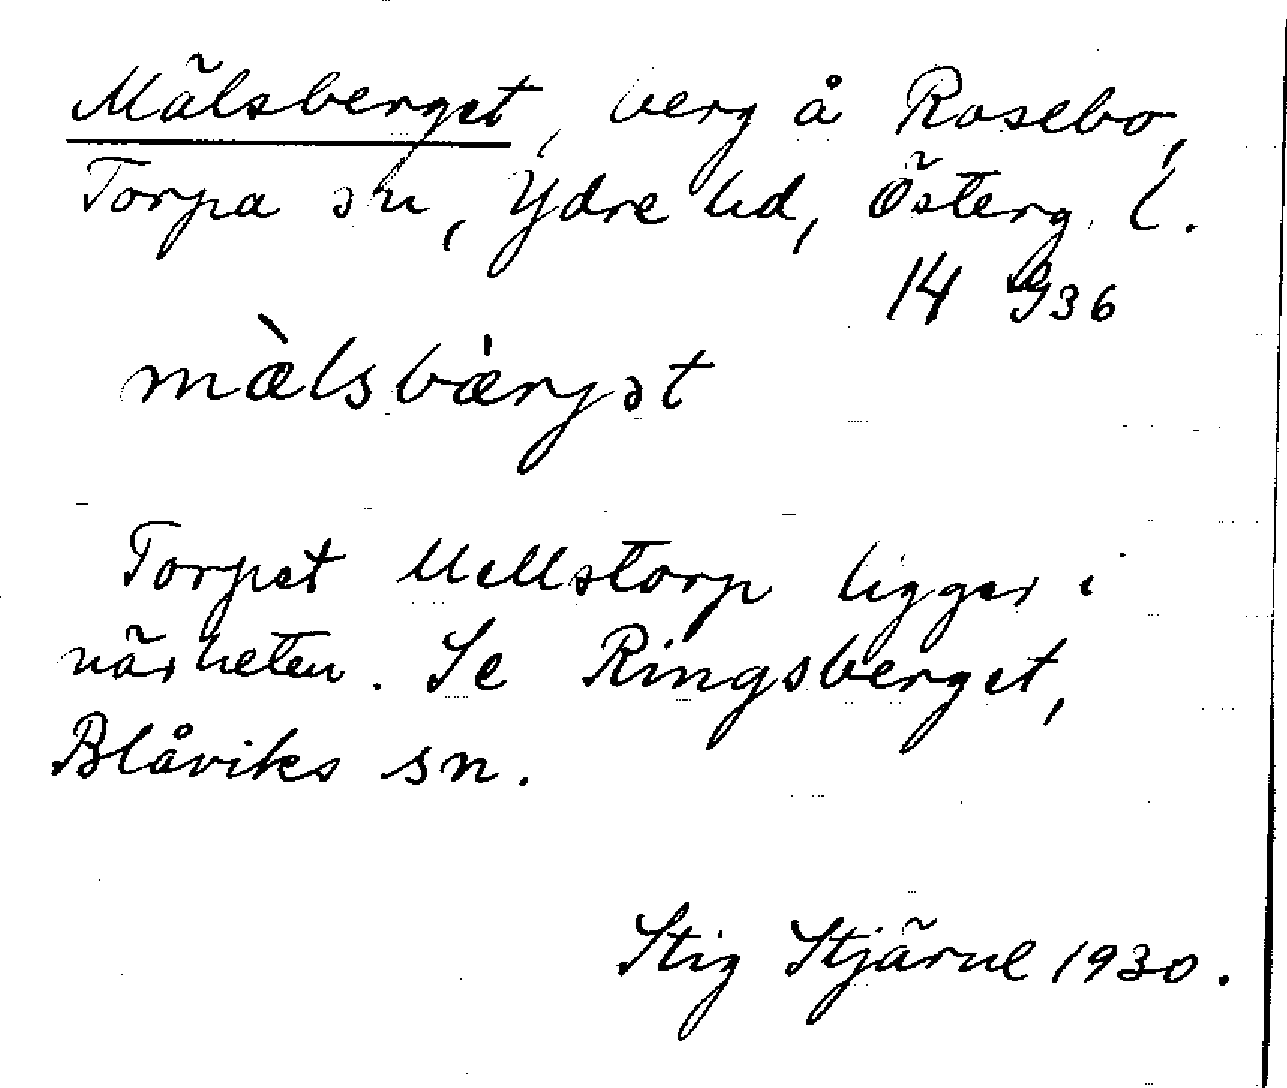 Mälsberget, berg å Rosebo,
Torpa sn, Ydre hd, Österg. l.
14 936
mæ̀lsbæ̀rjət
Torpet Mellstorp ligger i
närheten. Se Ringsberget,
Blåviks sn.
Stig Stjärne 1930.